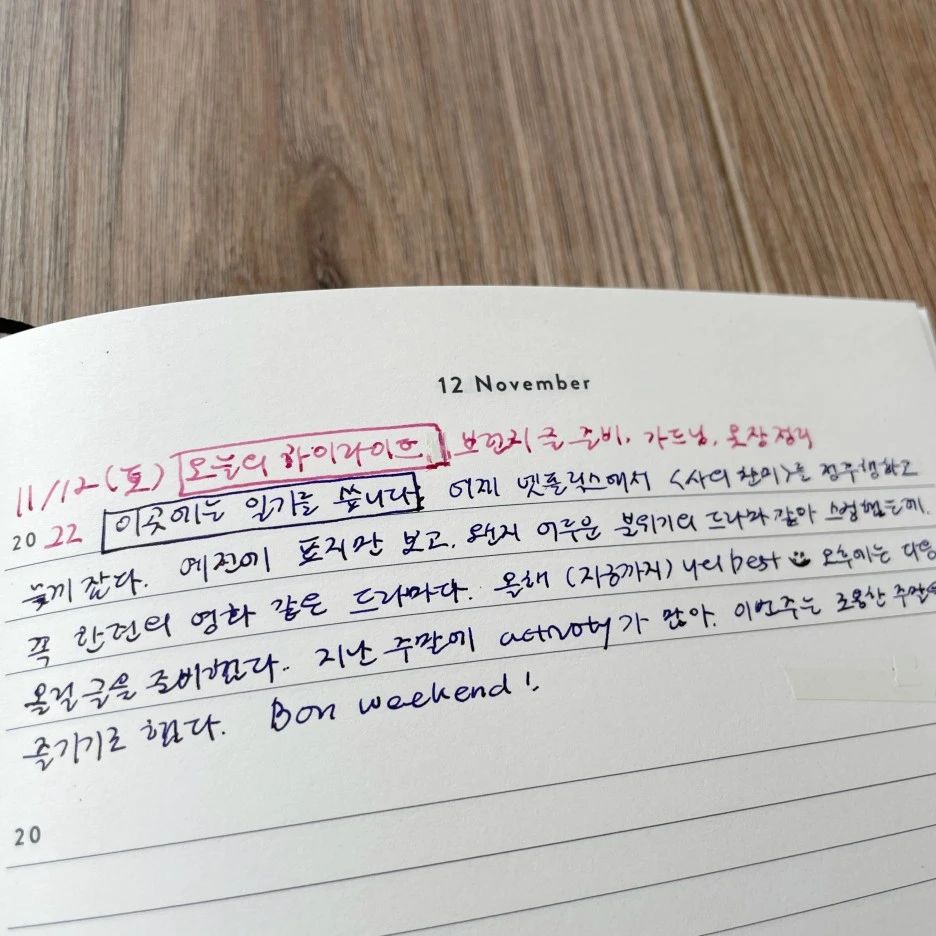 12 November
11/12 (토) 오늘의 하이라이트 브런치 글 준비, 가드닝, 옷장 정리
20 22 이곳에는 일기를 씁니다. 어제 넷플릭스에서 <사의 찬미>를 정주행하고
늦게 잤다. 예전에 표지만 보고, 왠지 어두운 분위기의 드라마 같아 스킵했는데,
꼭 한편의 영화 같은 드라마다. 올해 (지금까지) 나의 best 오후에는 다음
올릴 글을 준비했다. 지난 주말에 activity가 많아, 이번주는 조용한 주말을
즐기기로 했다. Bon weekend!
20